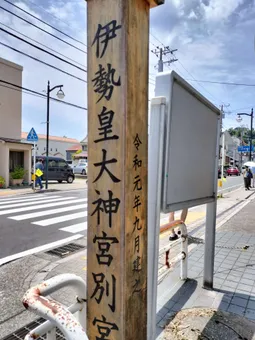 伊勢皇大神宮別宮
令和元年九月建之